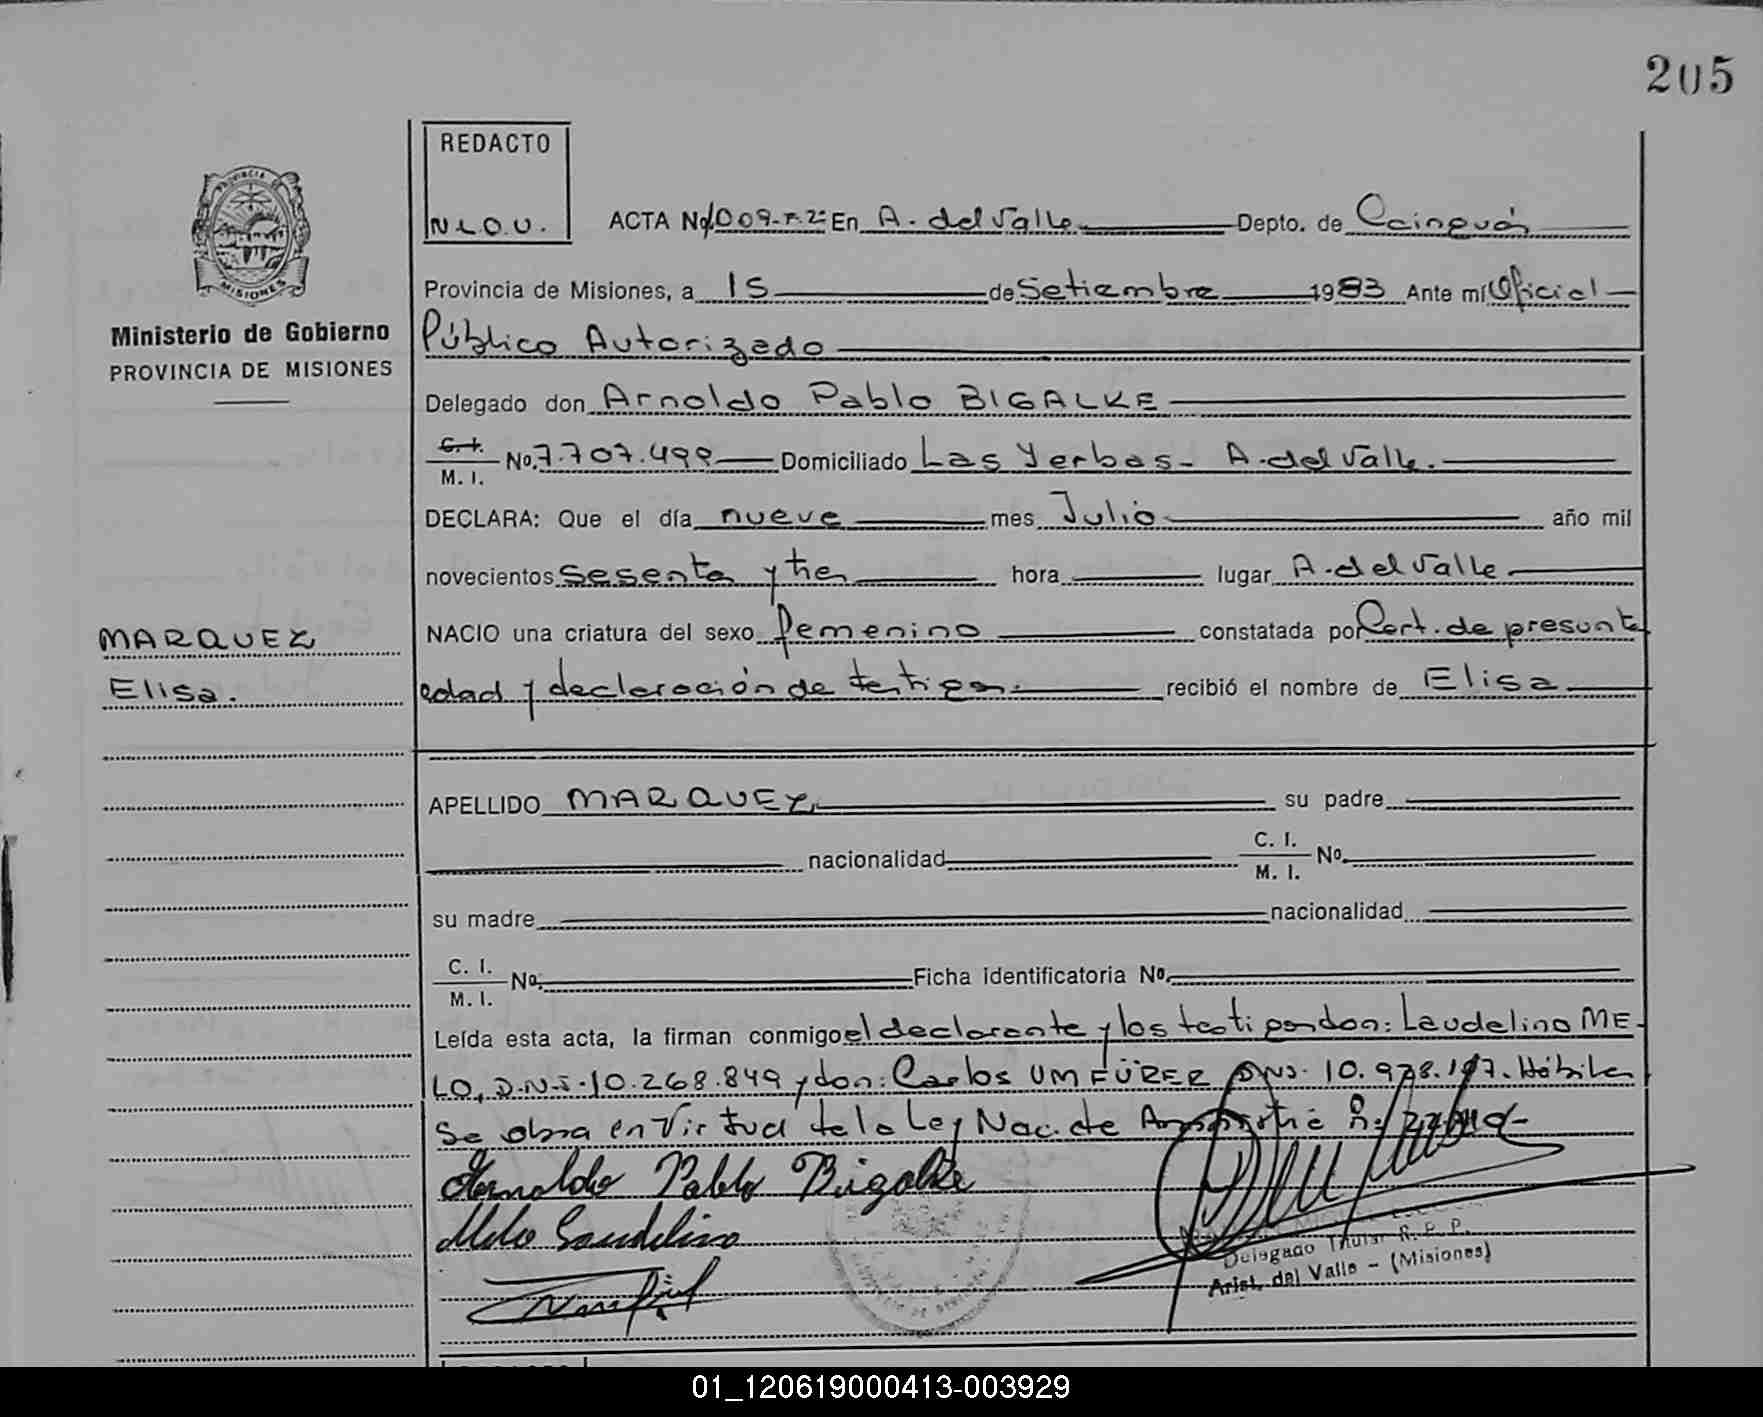 205
REDACTO
N.L.O.U.
ACTA No 1009-F.2º En A. del Valle Depto. de Cainguás
Provincia de Misiones, a 15 de Setiembre 1983 Ante mí Oficial
Público Autorizado
Delegado don Arnoldo Pablo BIGALKE
C. I. M. I. No. 7.707.499 Domiciliado Las Yerbas - A. del Valle.
DECLARA: Que el día nueve mes Julio año mil
novecientos sesenta y tres hora lugar A. del Valle
NACIO una criatura del sexo femenino constatada por Cert. de presunta
edad y declaración de testigos. recibió el nombre de Elisa
APELLIDO MARQUEZ su padre
nacionalidad C. I. M. I. No.
su madre nacionalidad
C. I. M. I. No. Ficha identificatoria No.
Leída esta acta, la firman conmigo el declarante y los testigos don: Laudelino ME-
LO, D.N.I. 10.268.849 y don: Carlos UMFÜRER D.N.I. 10.978.197. Hábiles
Se obra en Virtud de la Ley Nac. de Amnistía
Arnoldo Pablo Bigalke
Melo Laudelino
Delegado Titular R. P. P.
Arist. del Valle - (Misiones)
PROVINCIA DE
MISIONES
Ministerio de Gobierno
PROVINCIA DE MISIONES
MARQUEZ
Elisa.
01_120619000413-003929